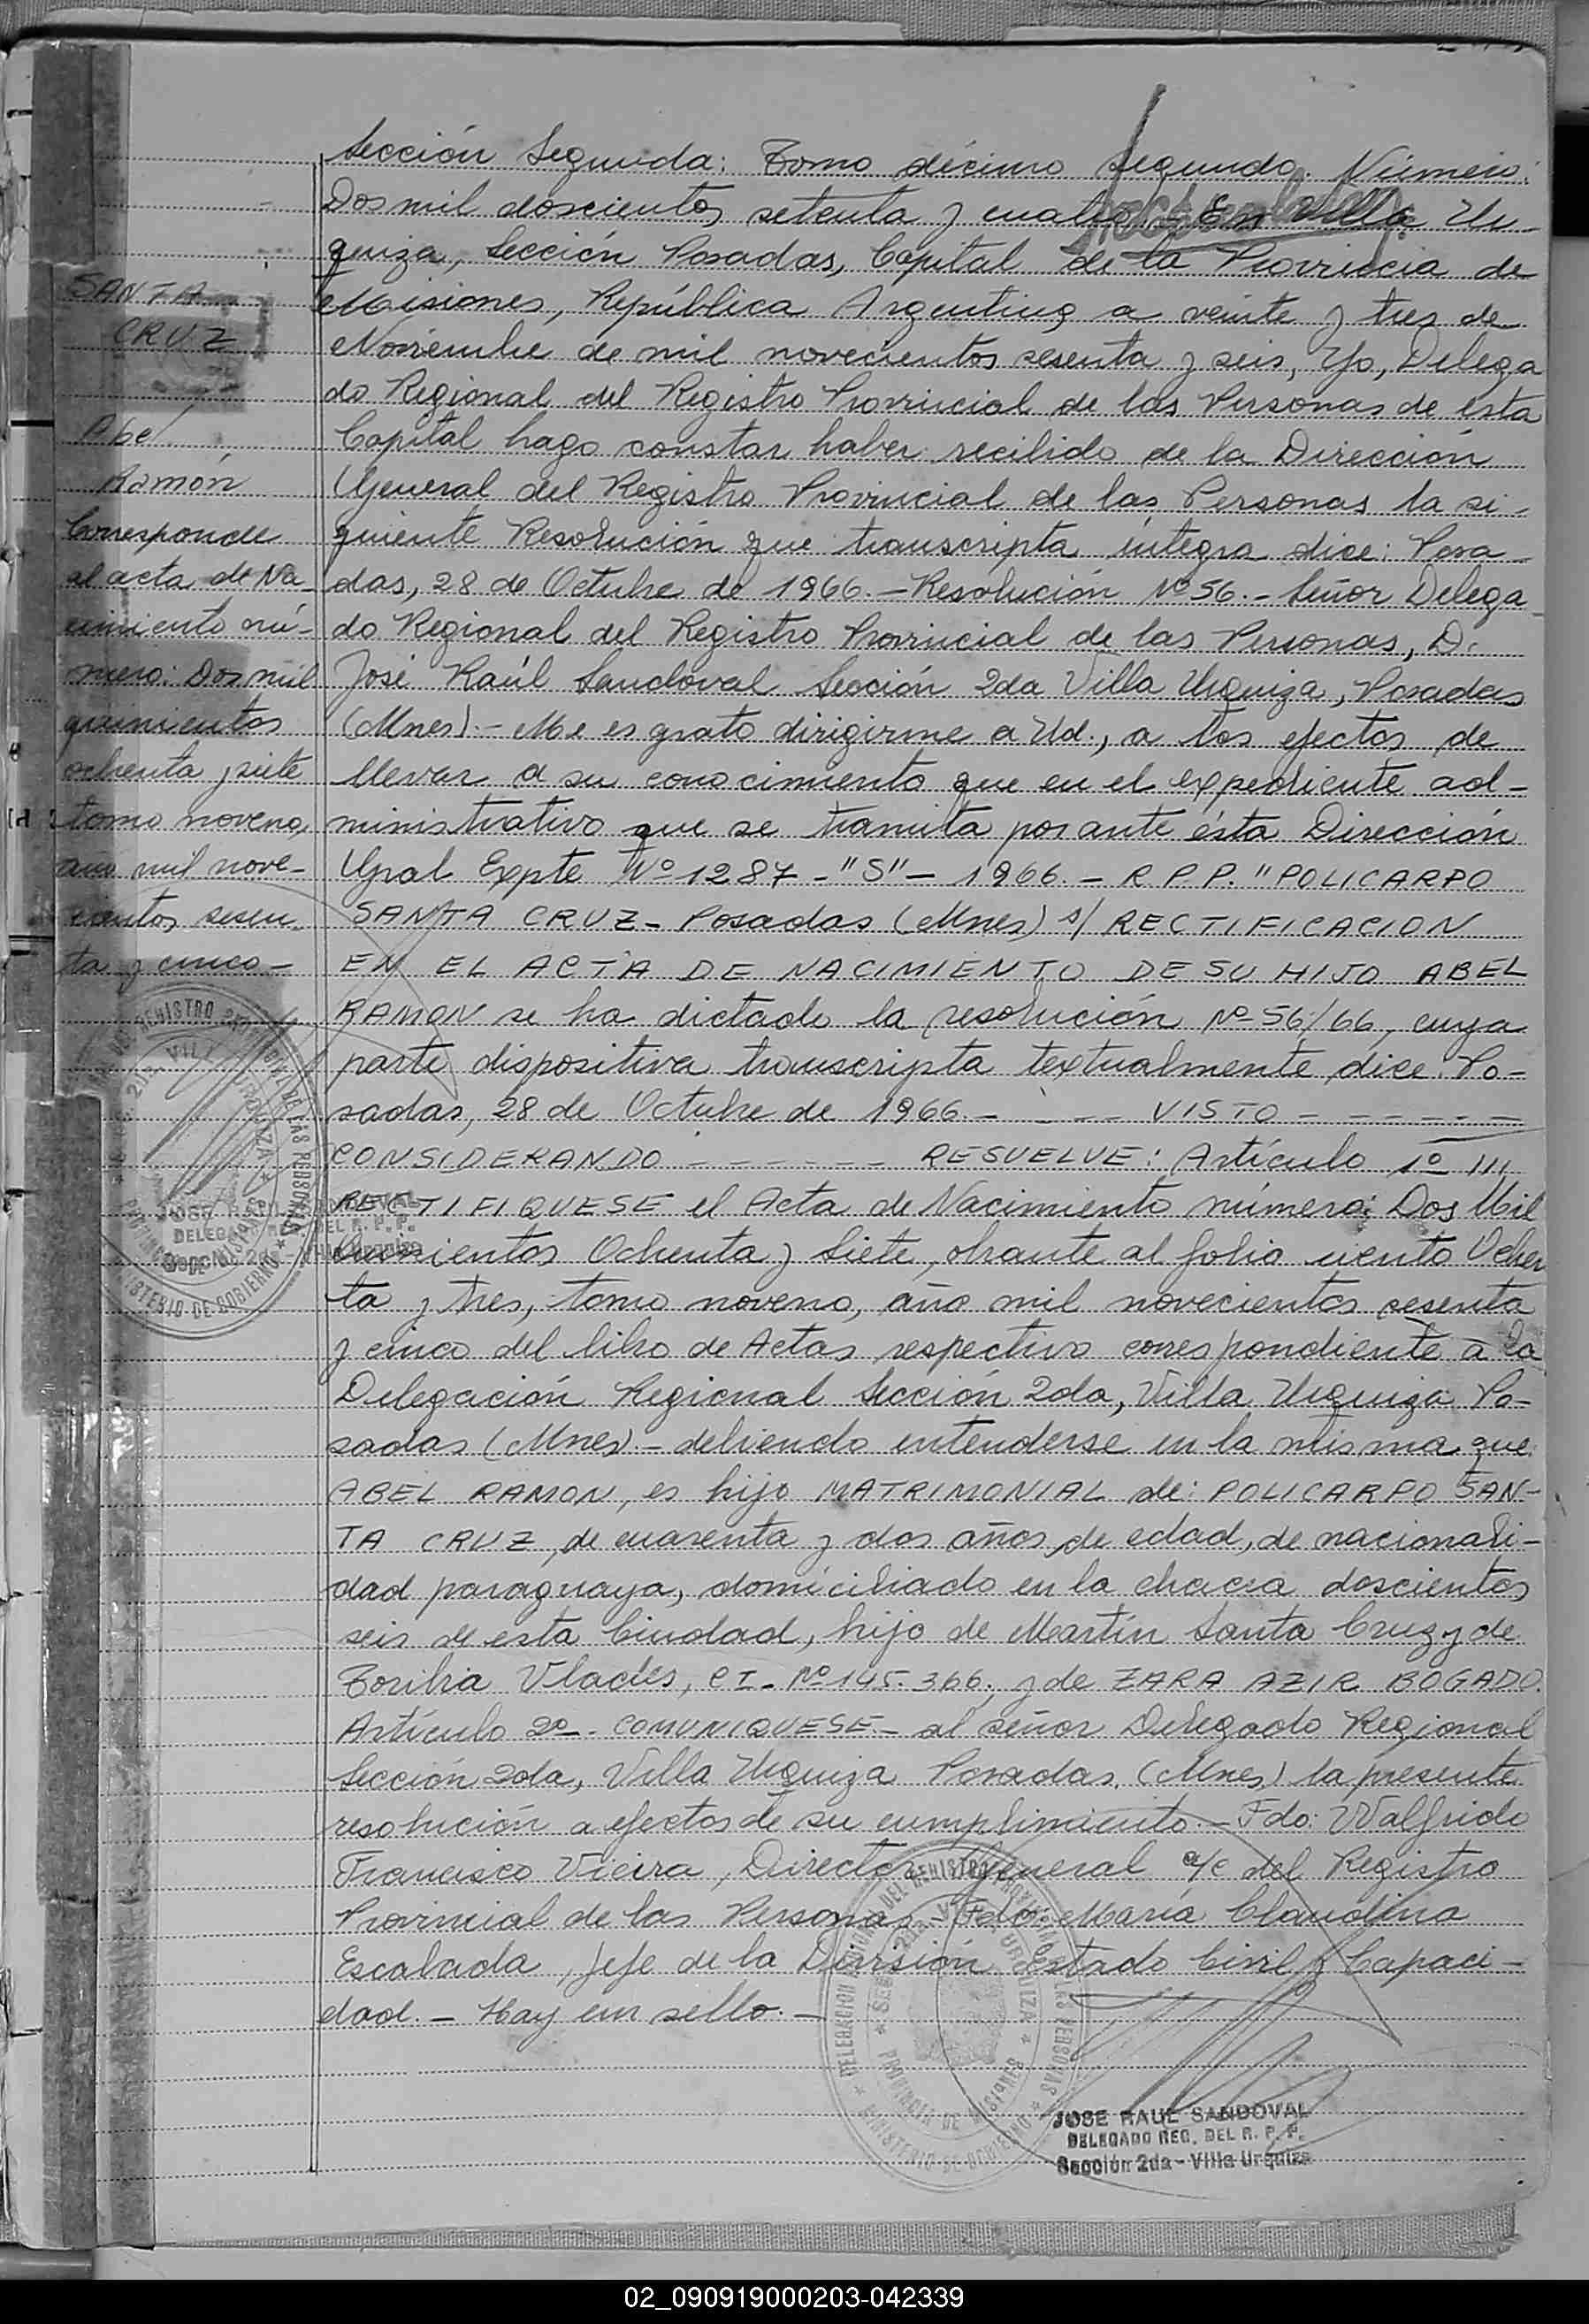 Sección Segunda: Tomo décimo segundo. Número:
Dos mil doscientos setenta y cuatro. En Villa Ur
quiza, Sección Posadas, Capital de la Provincia de
Misiones, República Argentina a veinte y tres de
Noviembre de mil novecientos sesenta y seis, Yo, Delega
do Regional del Registro Provincial de las Personas de esta
Capital hago constar haber recibido de la Dirección
General del Registro Provincial de las Personas la si-
guiente Resolución que transcripta íntegra dice: Posa-
das, 28 de Octubre de 1966.- Resolución Nº 56.- Señor Delega
do Regional del Registro Provincial de las Personas, D.
José Raúl Sandoval Sección 2da Villa Urquiza, Posadas
(Mnes).- Me es grato dirigirme a Ud., a los efectos de
llevar a su conocimiento que en el expediente ad-
ministrativo que se tramita por ante ésta Dirección
Gral Expte Nº 1287-"S"- 1966.- R.P.P. "POLICARPO
SANTA CRUZ- Posadas (Mnes) s/ RECTIFICACION
EN EL ACTA DE NACIMIENTO DE SU HIJO ABEL
RAMON se ha dictado la resolución Nº 56/66, cuya
parte dispositiva transcripta textualmente dice: Po-
sadas, 28 de Octubre de 1966.- - - - VISTO - - - - - -
CONSIDERANDO - - - - - - RESUELVE: Artículo 1º
RECTIFIQUESE el Acta de Nacimiento número: Dos Mil
Quinientos Ochenta y Siete, obrante al folio ciento Ochen
ta y tres, tomo noveno, año mil novecientos sesenta
y cinco del libro de Actas respectivo correspondiente a la
Delegación Regional Sección 2da, Villa Urquiza Po-
sadas (Mnes).- debiendo entenderse en la misma que:
ABEL RAMON, es hijo MATRIMONIAL de: POLICARPO SAN-
TA CRUZ, de cuarenta y dos años de edad, de nacionali-
dad paraguaya, domiciliado en la chacra doscientos
seis de esta Ciudad, hijo de Martín Santa Cruz y de
Toribia CI. Nº 145.366, y de ZARA AZIR BOGADO.
Artículo 2º- COMUNIQUESE.- al señor Delegado Regional
Sección 2da, Villa Urquiza Posadas (Mnes) la presente
resolución a efectos de su cumplimiento.- Fdo: Walfrido
Francisco Vieira, Director General a/c del Registro
Provincial de las Personas - Fdo: María Claudina
Escalada, Jefe de la División Estado Civil y Capaci-
dad.- Hay un sello.-
SANTA
CRUZ
Abel
Ramón
Corresponde
al acta de Na-
cimiento nú-
mero: Dos mil
quinientos
ochenta y siete
tomo noveno,
año mil nove-
cientos sesen-
ta y cinco-
JOSE RAUL SANDOVAL
DELEGADO REG. DEL R. P. P.
Sección 2da - Villa Urquiza
DELEGACION REGIONAL DEL REGISTRO PROVINCIAL DE LAS PERSONAS
PROVINCIA DE MISIONES
MINISTERIO DE GOBIERNO
JOSE RAUL SANDOVAL
DELEGADO REG. DEL R. P. P.
Sección 2da - Villa Urquiza
02_090919000203-042339